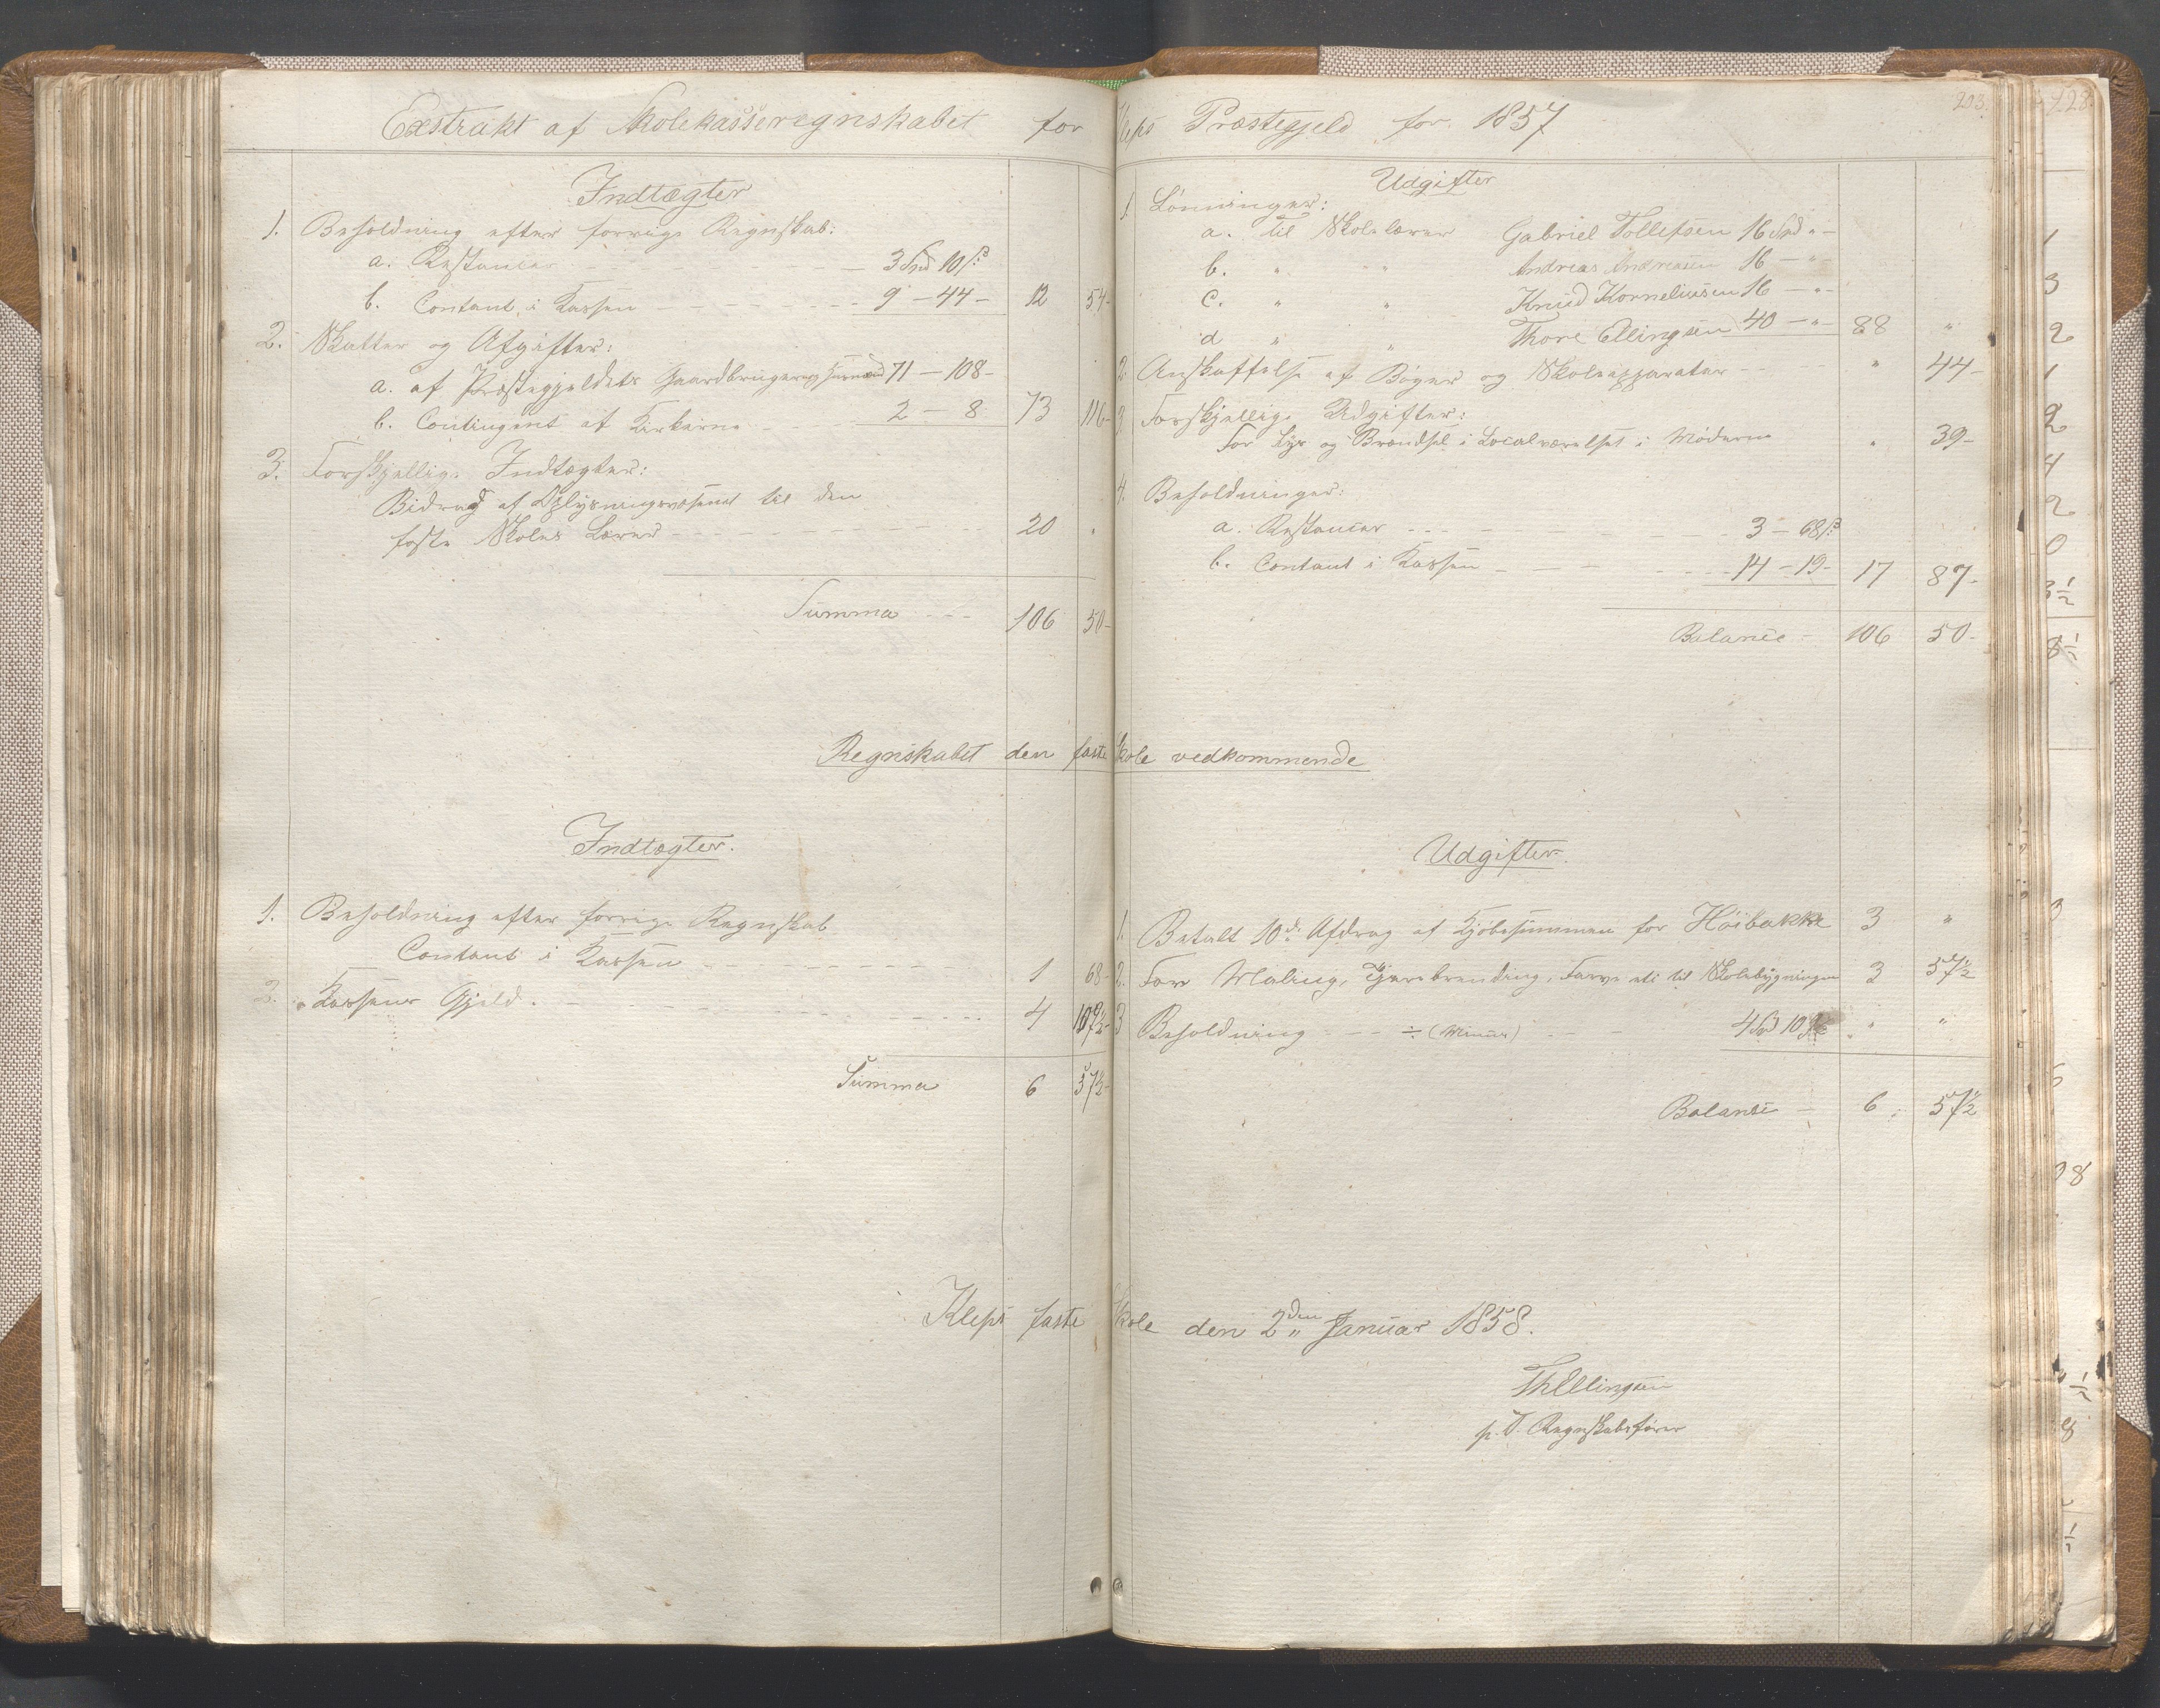 Exstrakt af Skolekasseregnskabet for
Indtægter
1. Beholdning efter forrige Regnskab:
a. Restancer - - - 3 Spd 10 ß
b. Contant i Kassen - - - 9 - 44 - 12 54 -
2. Skatter og Afgifter:
a. af Præstegjeldets Gaardbrugere og 71 - 108 -
b. Contingent af Kirkerne - 2 - 8 73 116 -
3. Forskjellige Indtægter:
Bidrag af Oplysningsvæsenet til den
faste Skoles Lærer - - - 20 "
Summa - - - 106 50 -
Regnskabet den faste
Indtægter.
1. Beholdning efter forrige Regnskab
Contant i Kassen - - - 1 68 -
2. Kassens Gjeld. - - - 4 109½ -
Summa 6 57½ -
Kleps faste
203.
Kleps Præstegjeld for 1857
Udgifter
1. Lønninger:
a. til Skolelærer Gabriel Tollefsen 16 Spd " -
b. " " Andreas Andreasen 16 - " -
c. " " Knud Korneliussen 16 - " -
d " " Thore Ellingsen 40 - " - 88 "
2. Anskaffelse af Bøger og Skoleapparater - - - " 44 -
3. Forskjellige Udgifter:
For Lys og Brændsel i Localværelset i Møderne " 39 -
4. Beholdninger:
a. Restancer - - - 3 - 68 ß
b. Contant i Kassen - - - 14 - 19 - 17 87 -
Balance - 106 50 -
Skole vedkommende
Udgifter.
1. Betalt 10de Afdrag af Kjøbesummen for Høibakke 3 "
2. For Maling, Tjærebrending, Farve etc til Skolebygningen 3 57½
3 Beholdning - - - ÷ (Minus) - - 4 Spd 109½ " "
Balance - 6 57½
Skole den 2den Januar 1858.
ThEllingsen
p. T. Regnskabsfører
228.